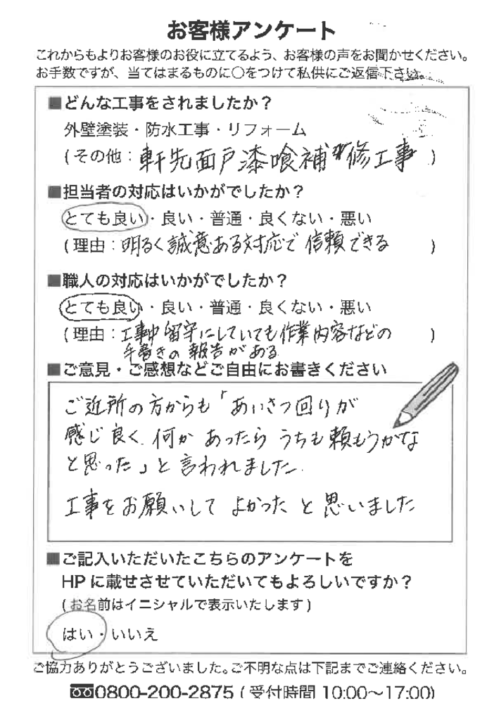 お客様アンケート
これからもよりお客様のお役に立てるよう、お客様の声をお聞かせください。
お手数ですが、当てはまるものに○をつけて私供にご返信下さい。
■どんな工事をされましたか？
外壁塗装・防水工事・リフォーム
(その他：軒先面戸漆喰補修工事 )
■担当者の対応はいかがでしたか？
とても良い・良い・普通・良くない・悪い
(理由：明るく誠意ある対応で信頼できる )
■職人の対応はいかがでしたか？
とても良い・良い・普通・良くない・悪い
(理由：工事中留守にしていても作業内容などの )
手書きの報告がある
■ご意見・ご感想などご自由にお書きください
ご近所の方からも「あいさつ回りが
感じ良く、何かあったらうちも頼もうかな
と思った」と言われました.
工事をお願いして よかった と思いました
■ご記入いただいたこちらのアンケートを
HPに載せさせていただいてもよろしいですか？
(お名前はイニシャルで表示いたします)
はい・いいえ
ご協力ありがとうございました。ご不明な点は下記までご連絡ください。
0800-200-2875 (受付時間 10:00〜17:00)